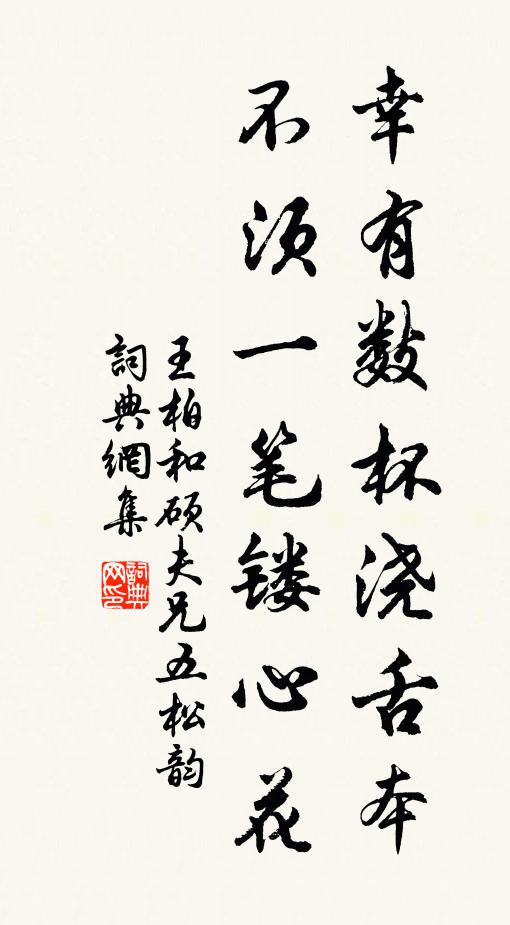 幸有数杯浇舌本
不须一笔镂心花
王柏和硕夫兄五松韵
詞典網集
詞典网印